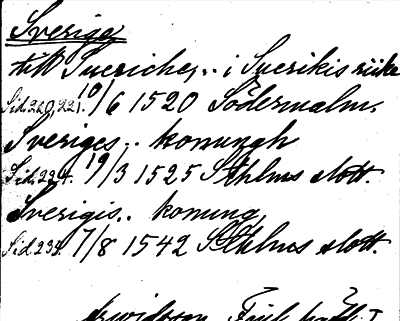 Sverige
till Sueriche, .. i Suerikis riike
Sid. 220, 221. 10/6 1520 Södermalm.
Sveriges .. konungh
Sid. 224. 19/3 1525 Sthlms slott.
Sverigis .. konung,
Sid 232. 7/8 1542 Sthlms slott.
Arwidsson